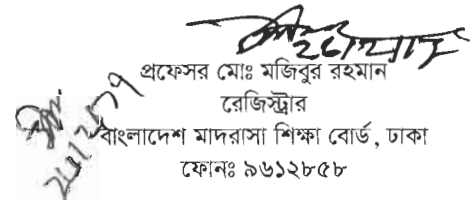 প্রফেসর মোঃ মজিবুর রহমান
রেজিস্ট্রার
বাংলাদেশ মাদরাসা শিক্ষা বোর্ড, ঢাকা
ফোনঃ ৯৬১২৮৫৮